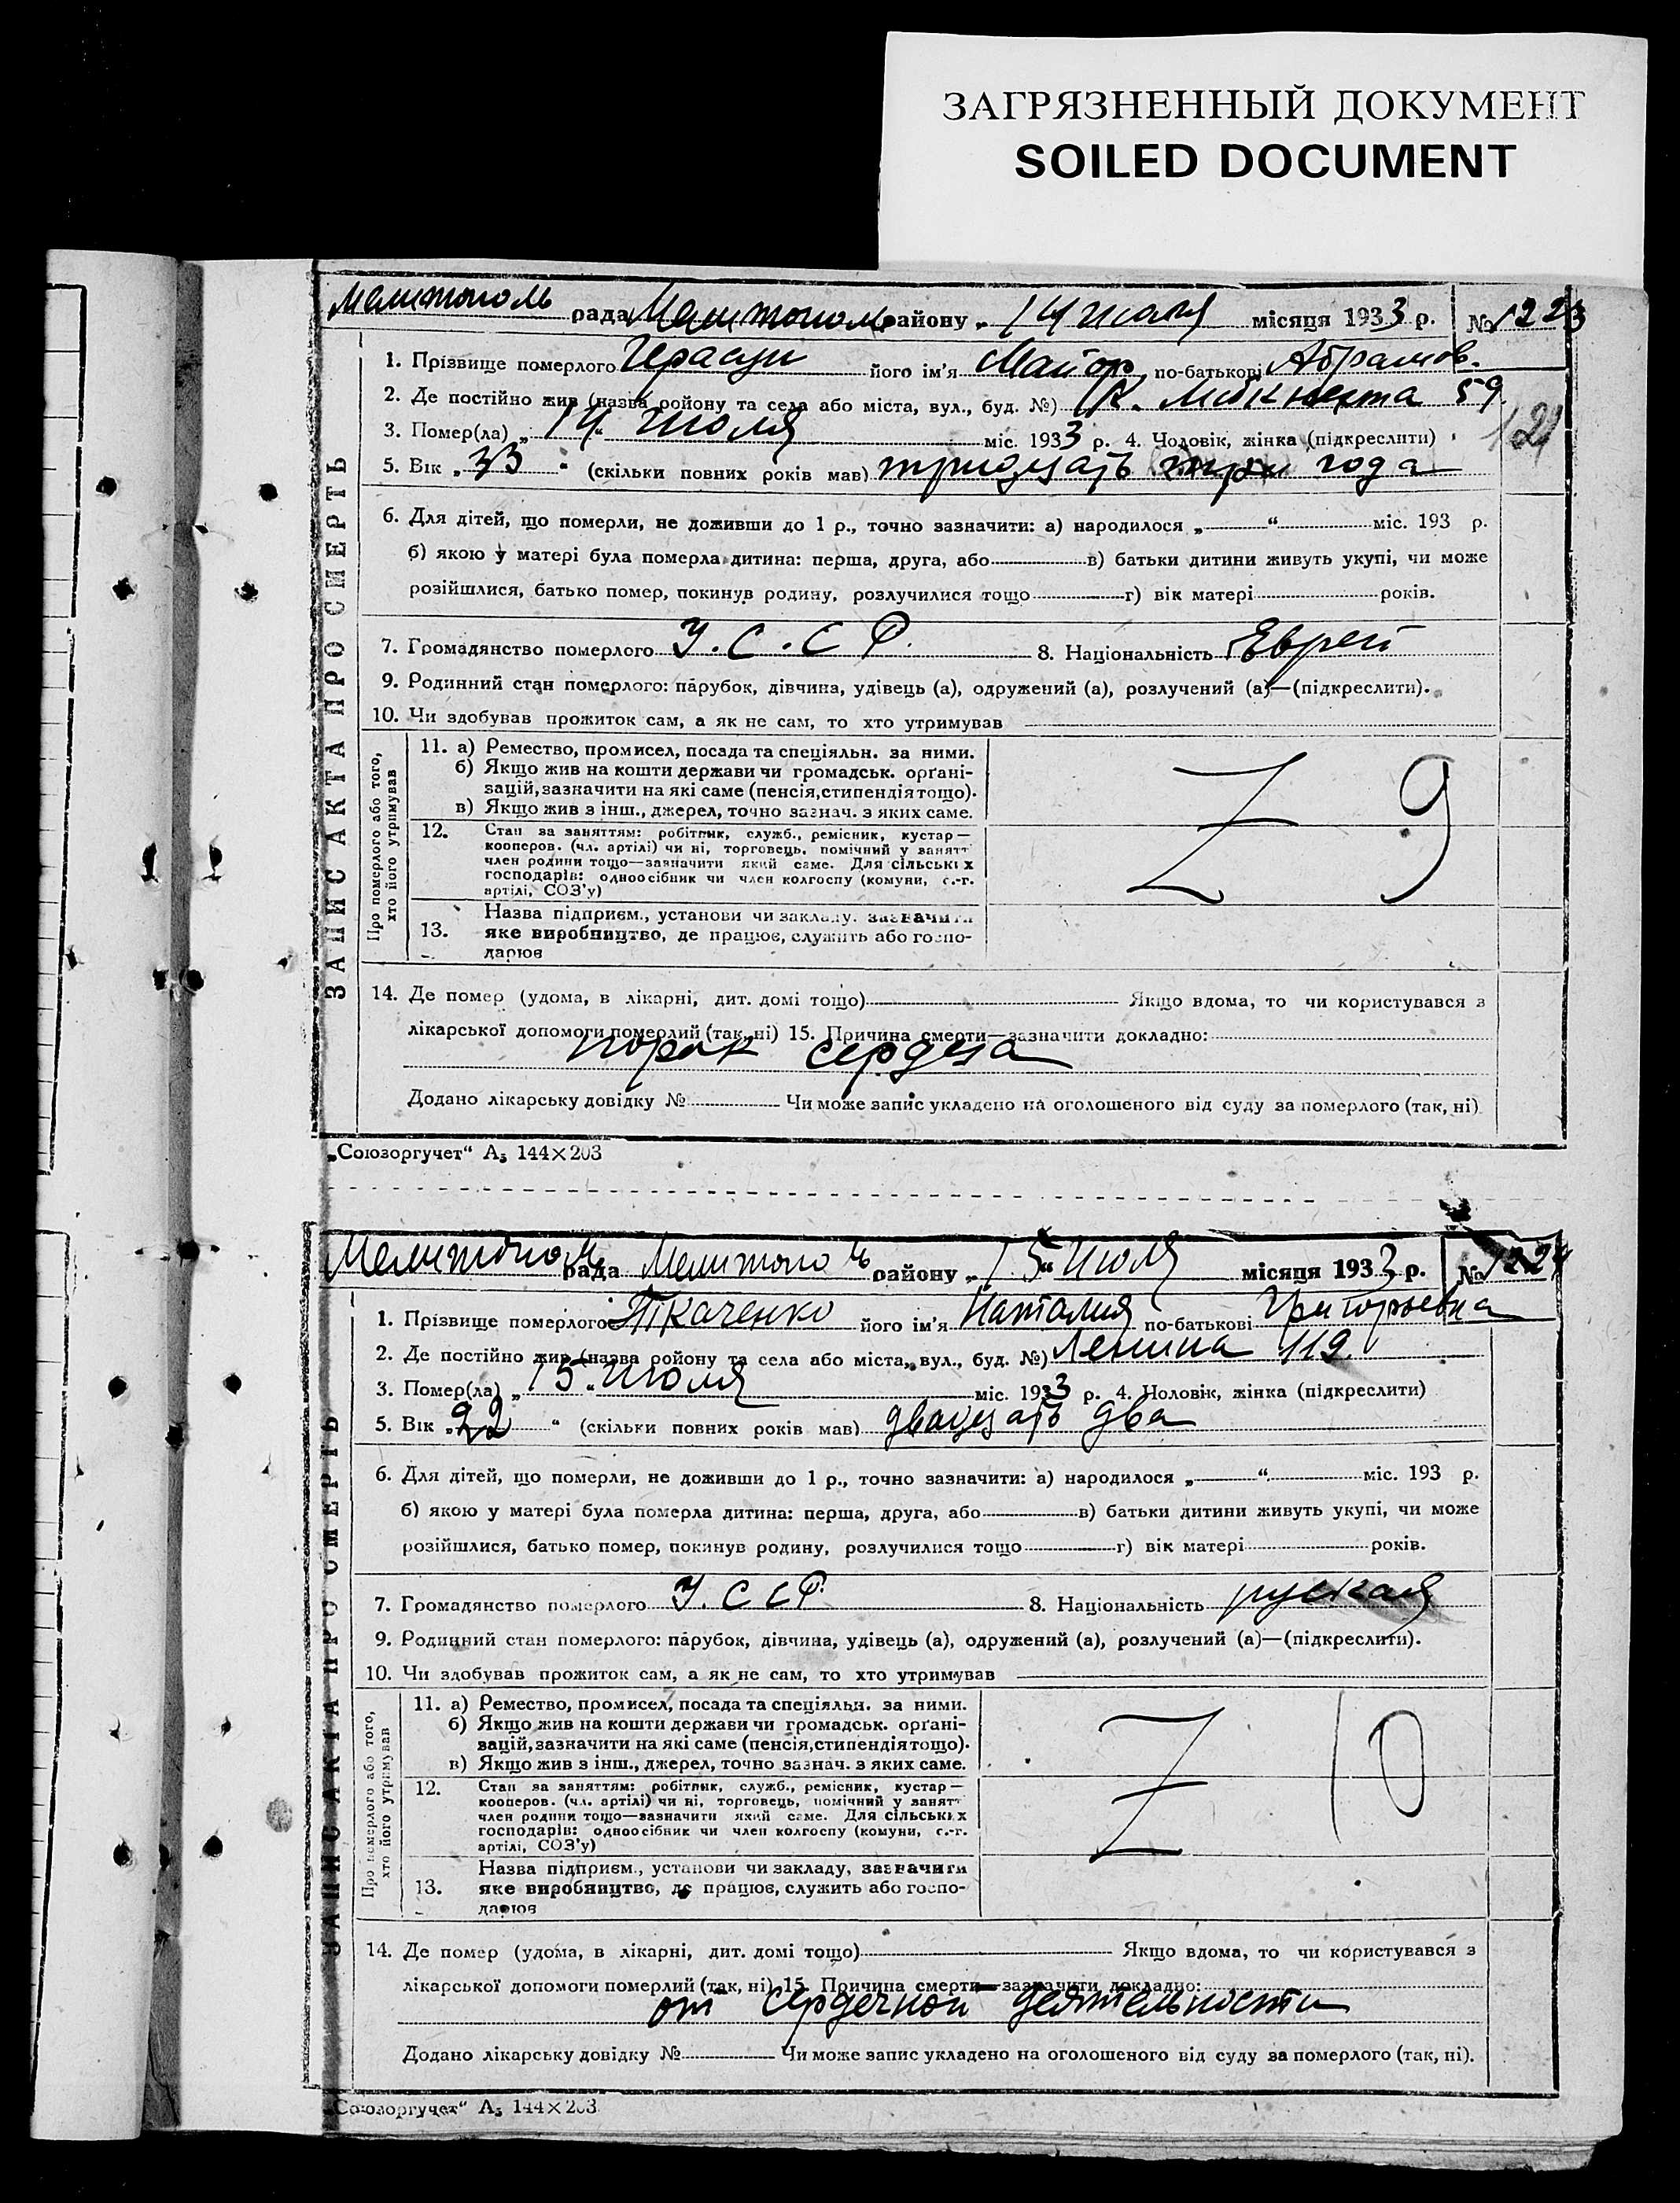 ЗАГРЯЗНЕННЫЙ ДОКУМЕНТ
SOILED DOCUMENT
Мелитополь рада Мелитополь району „ 14 июля місяця 1933 р. № 1223
ЗАПИС АКТА ПРО СМЕРТЬ
1. Прізвище померлого його ім'я Майор по-батькові Абрамов.
2. Де постійно жив (назва ройону та села або міста, вул., буд. №) К. Либкнехта 59.
3. Помер(ла) „ 14 " июля міс. 1933 р. 4. Чоловік, жінка (підкреслити)
121
5. Вік „ 33 " (скільки повних років мав) тридцать три года
6. Для дітей, що померли, не доживши до 1 р., точно зазначити: а) народилося „ “ міс. 193 р.
б) якою у матері була померла дитина: перша, друга, або в) батьки дитини живуть укупі, чи може
розійшлися, батько помер, покинув родину, розлучилися тощо г) вік матері років.
7. Громадянство померлого У.С.С.Р. 8. Національність Еврей
9. Родинний стан померлого: парубок, дівчина, удівець (а), одружений (а), розлучений (а)—(підкреслити).
10. Чи здобував прожиток сам, а як не сам, то хто утримував
Про померлого або того, хто його утримував
11. а) Ремество, промисел, посада та спеціяльн. за ними.
б) Якщо жив на кошти держави чи громадськ. орґані-
зацій, зазначити на які саме (пенсія, стипендія тощо).
в) Якщо жив з інш., джерел, точно зазнач. з яких саме.
12. Стан за заняттям: робітник, служб., ремісник, кустар—
кооперов. (чл. артілі) чи ні, торговець, помічний у занятт
член родини тощо—зазначити який саме. Для сільських
господарів: одноосібник чи член колгоспу (комуни, с.-г.
артілі, СОЗ'у)
Z 9
13. Назва підприєм., установи чи закладу, зазначити
яке виробництво, де працює, служить або госпо-
дарює
14. Де помер (удома, в лікарні, дит. домі тощо) Якщо вдома, то чи користувався з
лікарської допомоги померлий (так, ні) 15. Причина смерти—зазначити докладно:
порок сердца
Додано лікарську довідку № Чи може запис укладено на оголошеного від суду за померлого (так, ні)
„Союзоргучет“ А₅ 144×203
Мелитополь рада Мелитополь району „ 15 " июля місяця 1933 р. № 1224
ЗАПИС АКТА ПРО СМЕРТЬ
1. Прізвище померлого Ткаченко його ім'я Наталия по-батькові Григорьевна
2. Де постійно жив (назва ройону та села або міста, вул., буд. №) Ленина 119.
3. Помер(ла) „ 15 " июля міс. 1933 р. 4. Чоловік, жінка (підкреслити)
5. Вік „ 22 “ (скільки повних років мав) двадцать два
6. Для дітей, що померли, не доживши до 1 р., точно зазначити: а) народилося „ “ міс. 193 р.
б) якою у матері була померла дитина: перша, друга, або в) батьки дитини живуть укупі, чи може
розійшлися, батько помер, покинув родину, розлучилися тощо г) вік матері років.
7. Громадянство померлого У.ССР. 8. Національність руская
9. Родинний стан померлого: парубок, дівчина, удівець (а), одружений (а), розлучений (а)—(підкреслити).
10. Чи здобував прожиток сам, а як не сам, то хто утримував
Про померлого або того, хто його утримував
11. а) Ремество, промисел, посада та спеціяльн. за ними.
б) Якщо жив на кошти держави чи громадськ. орґані-
зацій, зазначити на які саме (пенсія, стипендія тощо).
в) Якщо жив з інш., джерел, точно зазнач. з яких саме.
12. Стан за заняттям: робітник, служб., ремісник, кустар—
кооперов. (чл. артілі) чи ні, торговець, помічний у занятт
член родини тощо—зазначити який саме. Для сільських
господарів: одноосібник чи член колгоспу (комуни, с.-г.
артілі, СОЗ'у)
Z 10
13. Назва підприєм., установи чи закладу, зазначити
яке виробництво, де працює, служить або госпо-
дарює
14. Де помер (удома, в лікарні, дит. домі тощо) Якщо вдома, то чи користувався з
лікарської допомоги померлий (так, ні) 15. Причина смерти—зазначити докладно:
от сердечной деятельности
Додано лікарську довідку № Чи може запис укладено на оголошеного від суду за померлого (так, ні).
„Союзоргучет“ А₅ 144×203